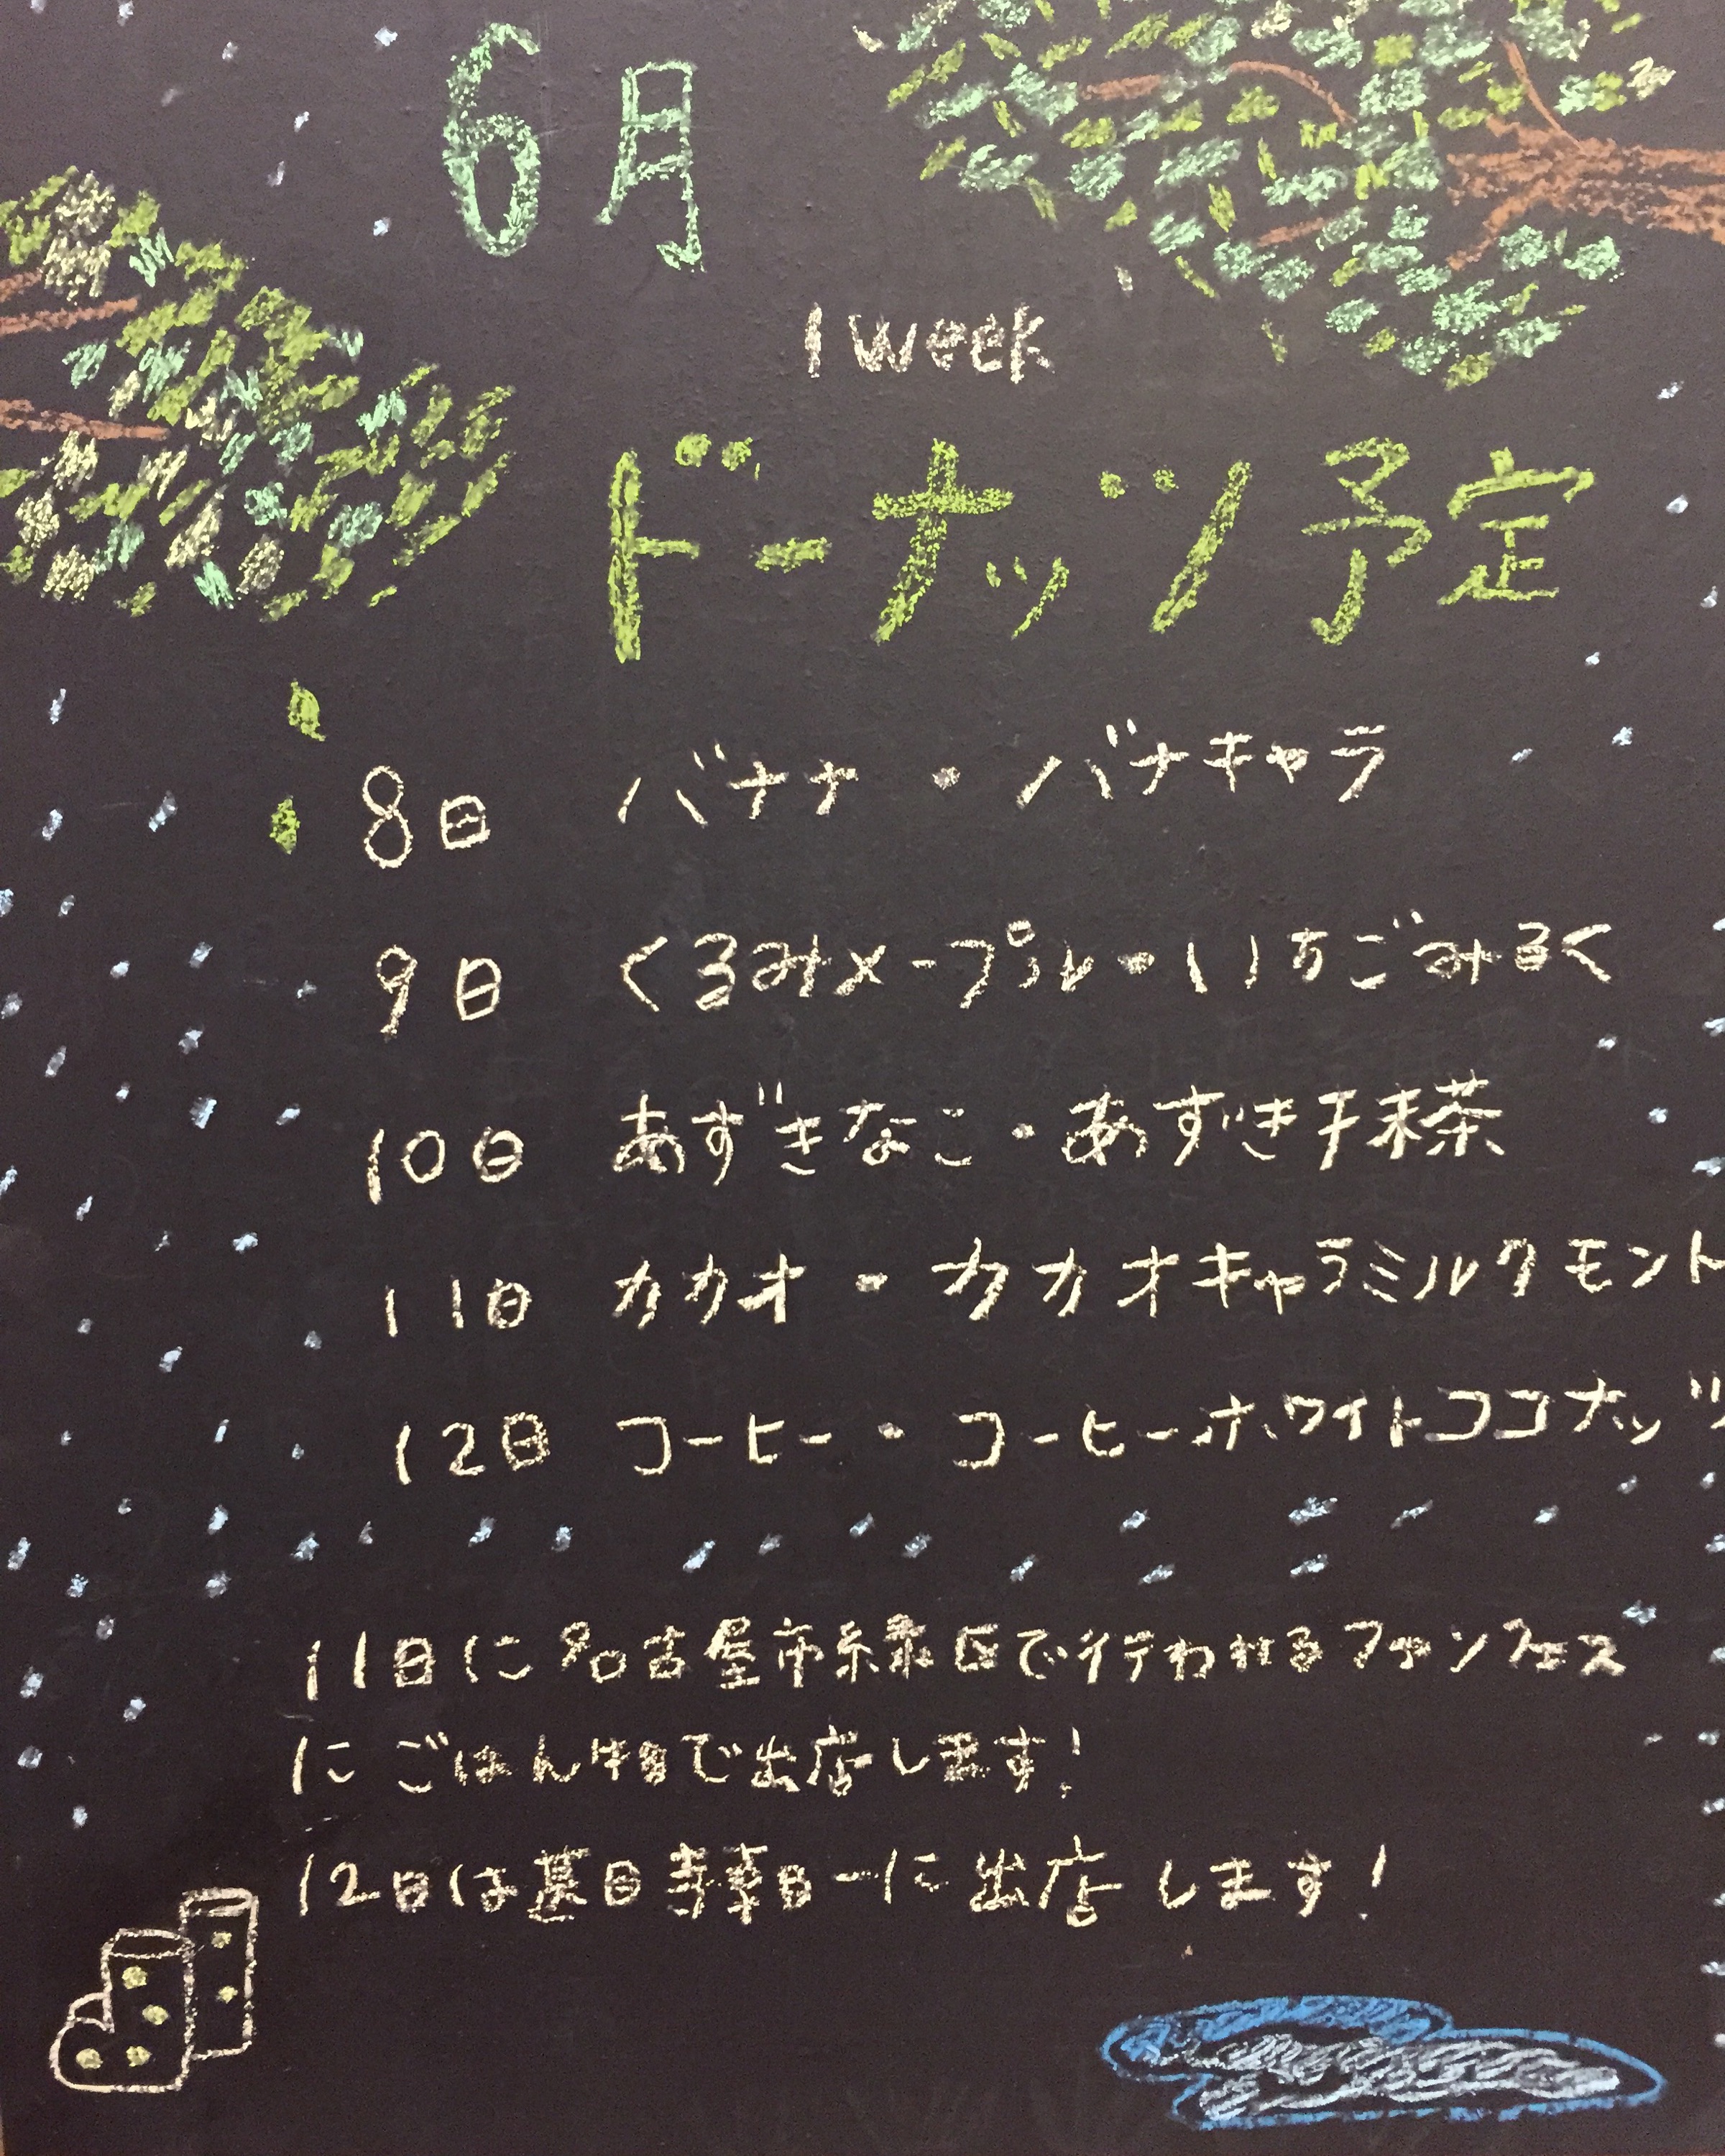 6月
1 week
ドーナッツ予定
8日 バナナ・バナキャラ
9日 くるみメープル・いちごみるく
10日 あずきなこ・あずき抹茶
11日 カカオ・カカオキャラミルクモント
12日 コーヒー・コーヒーホワイトココナッツ
11日に名古屋市緑区で行われるファンフェス
にごはん物で出店します!
12日は甚目寺楽日一に出店します!